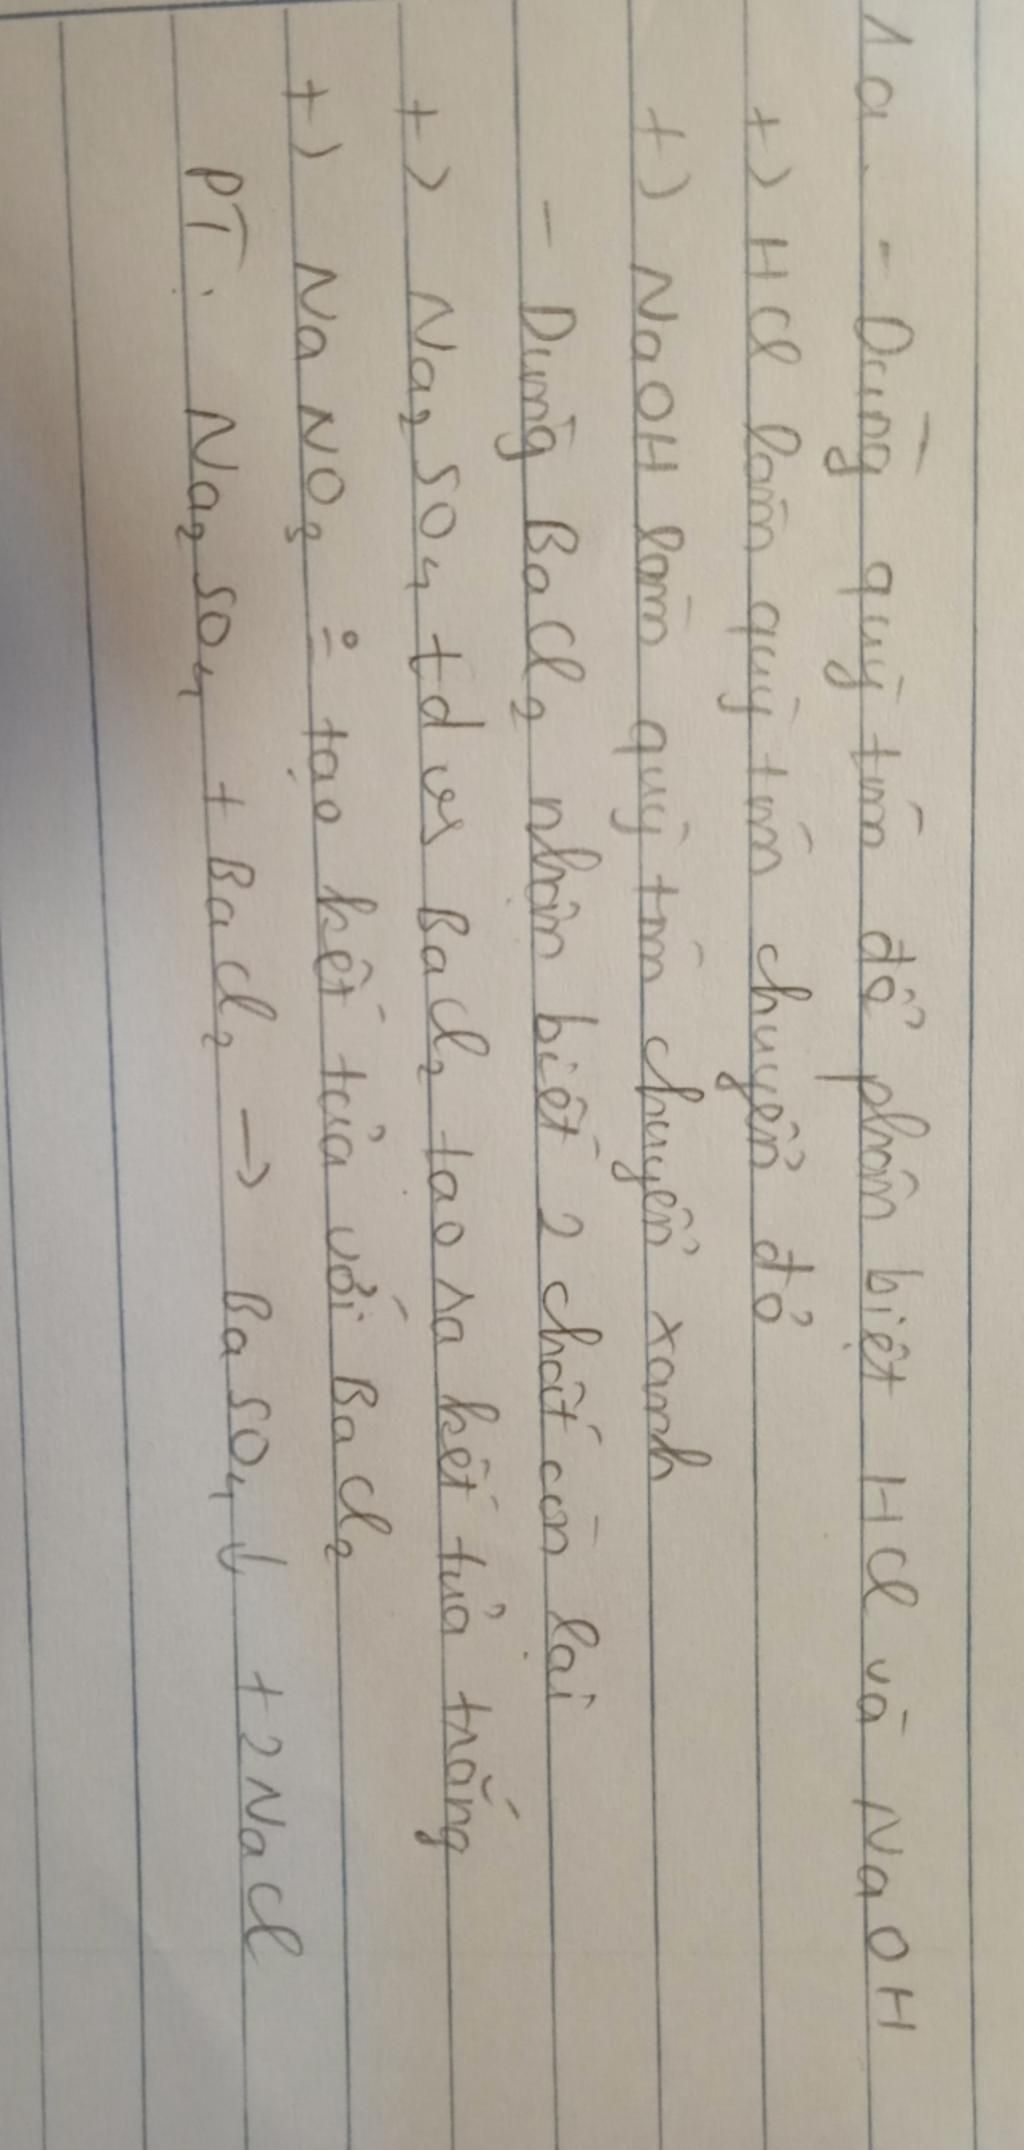 1a. - Dùng quỳ tím để phân biệt HCl và NaOH
+) HCl làm quỳ tím chuyển đỏ
+) NaOH làm quỳ tím chuyển xanh
- Dùng BaCl₂ nhận biết 2 chất còn lại
+) Na₂SO₄ td vs BaCl₂ tạo ra kết tủa trắng
+) NaNO₃ ÷ tạo kết tủa với BaCl₂
PT: Na₂SO₄ + BaCl₂ → BaSO₄↓ + 2NaCl